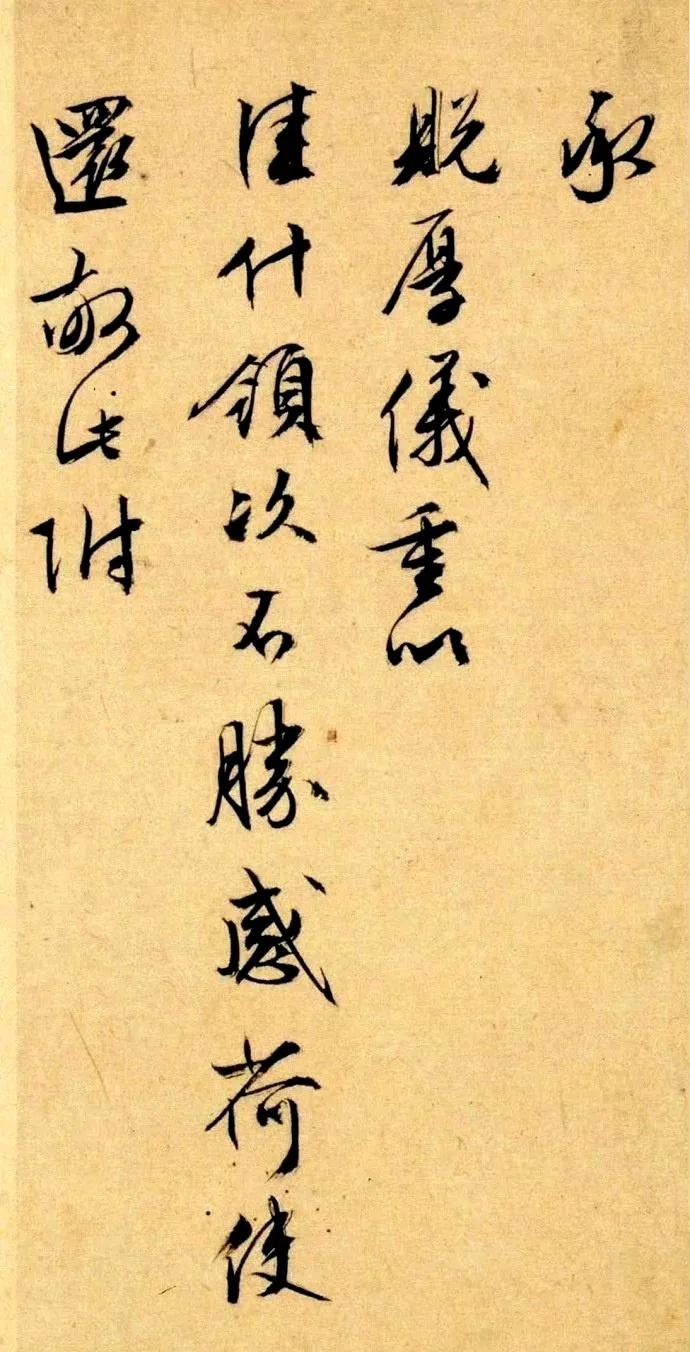 承
贶厚儀重以
佳什領次不勝感荷使
還敬此附